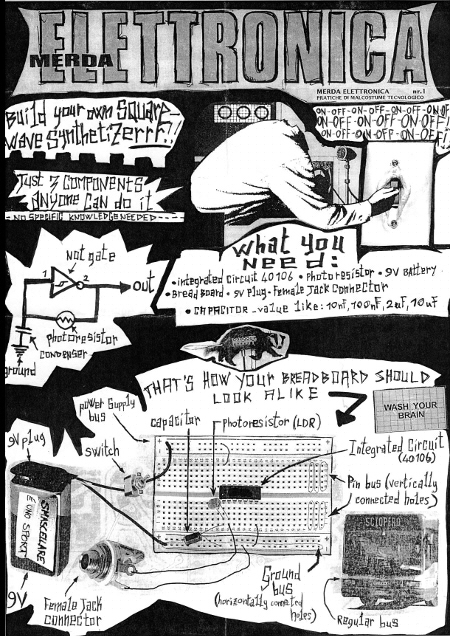 ELETTRONICA
MERDA
MERDA ELETTRONICA nr.1
PRATICHE DI MALCOSTUME TECNOLOGICO
Build your own Square-
wave SynthetiZerrr!!
ON-OFF-ON-OFF-ON-OFF-ON-OF
ON-OFF-ON-OFF-ON-OFF!
ON-OFF-ON-OFF-ON-OFF-
ON-OFF-ON-OFF!!
Just 3 COMPONENTS
ANyONE CAN do it
- NO SPECIFIC KNOWLEDGE NEEDED ---
what you
NEED:
• integrated Circuit 40106 • Photoresistor • 9V BAttery
• BreadBoard • 9V Plug • Female Jack Connector
• CAPACITOR - value like: 10nF, 100nF, 2uF, 10uF
Not gate
1
2
out
photoresistor
CONDENSER
ground
THAT'S HOW YOUR BREADBOARD SHOULD
LOOK ALIKE
WASH YOUR
BRAIN
power Supply
bus
capacitor
photoresistor (LDR)
9V plug
switch
Integrated Circuit
(40106)
Pin bus (vertically
connected holes)
SMASCELLARE
È UNO SPORT
SCIOPERO
9V
Female Jack
connector
Ground
bus
(horizontally connected
holes)
Regular bus